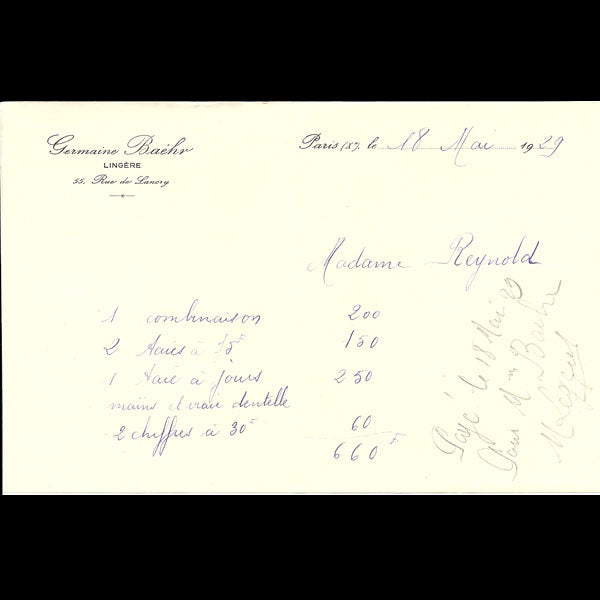 Germaine Baëhr
LINGÈRE
55, Rue de Lancry
Paris (Xe), le 18 Mai 1929
Madame Reynold
1 combinaison 200
2 taies à 75 150
1 taie à jours 250
mains et vraie dentelle
2 chiffres à 30 60
660
Payé le 18 Mai 29
Pour Mme Baëhr